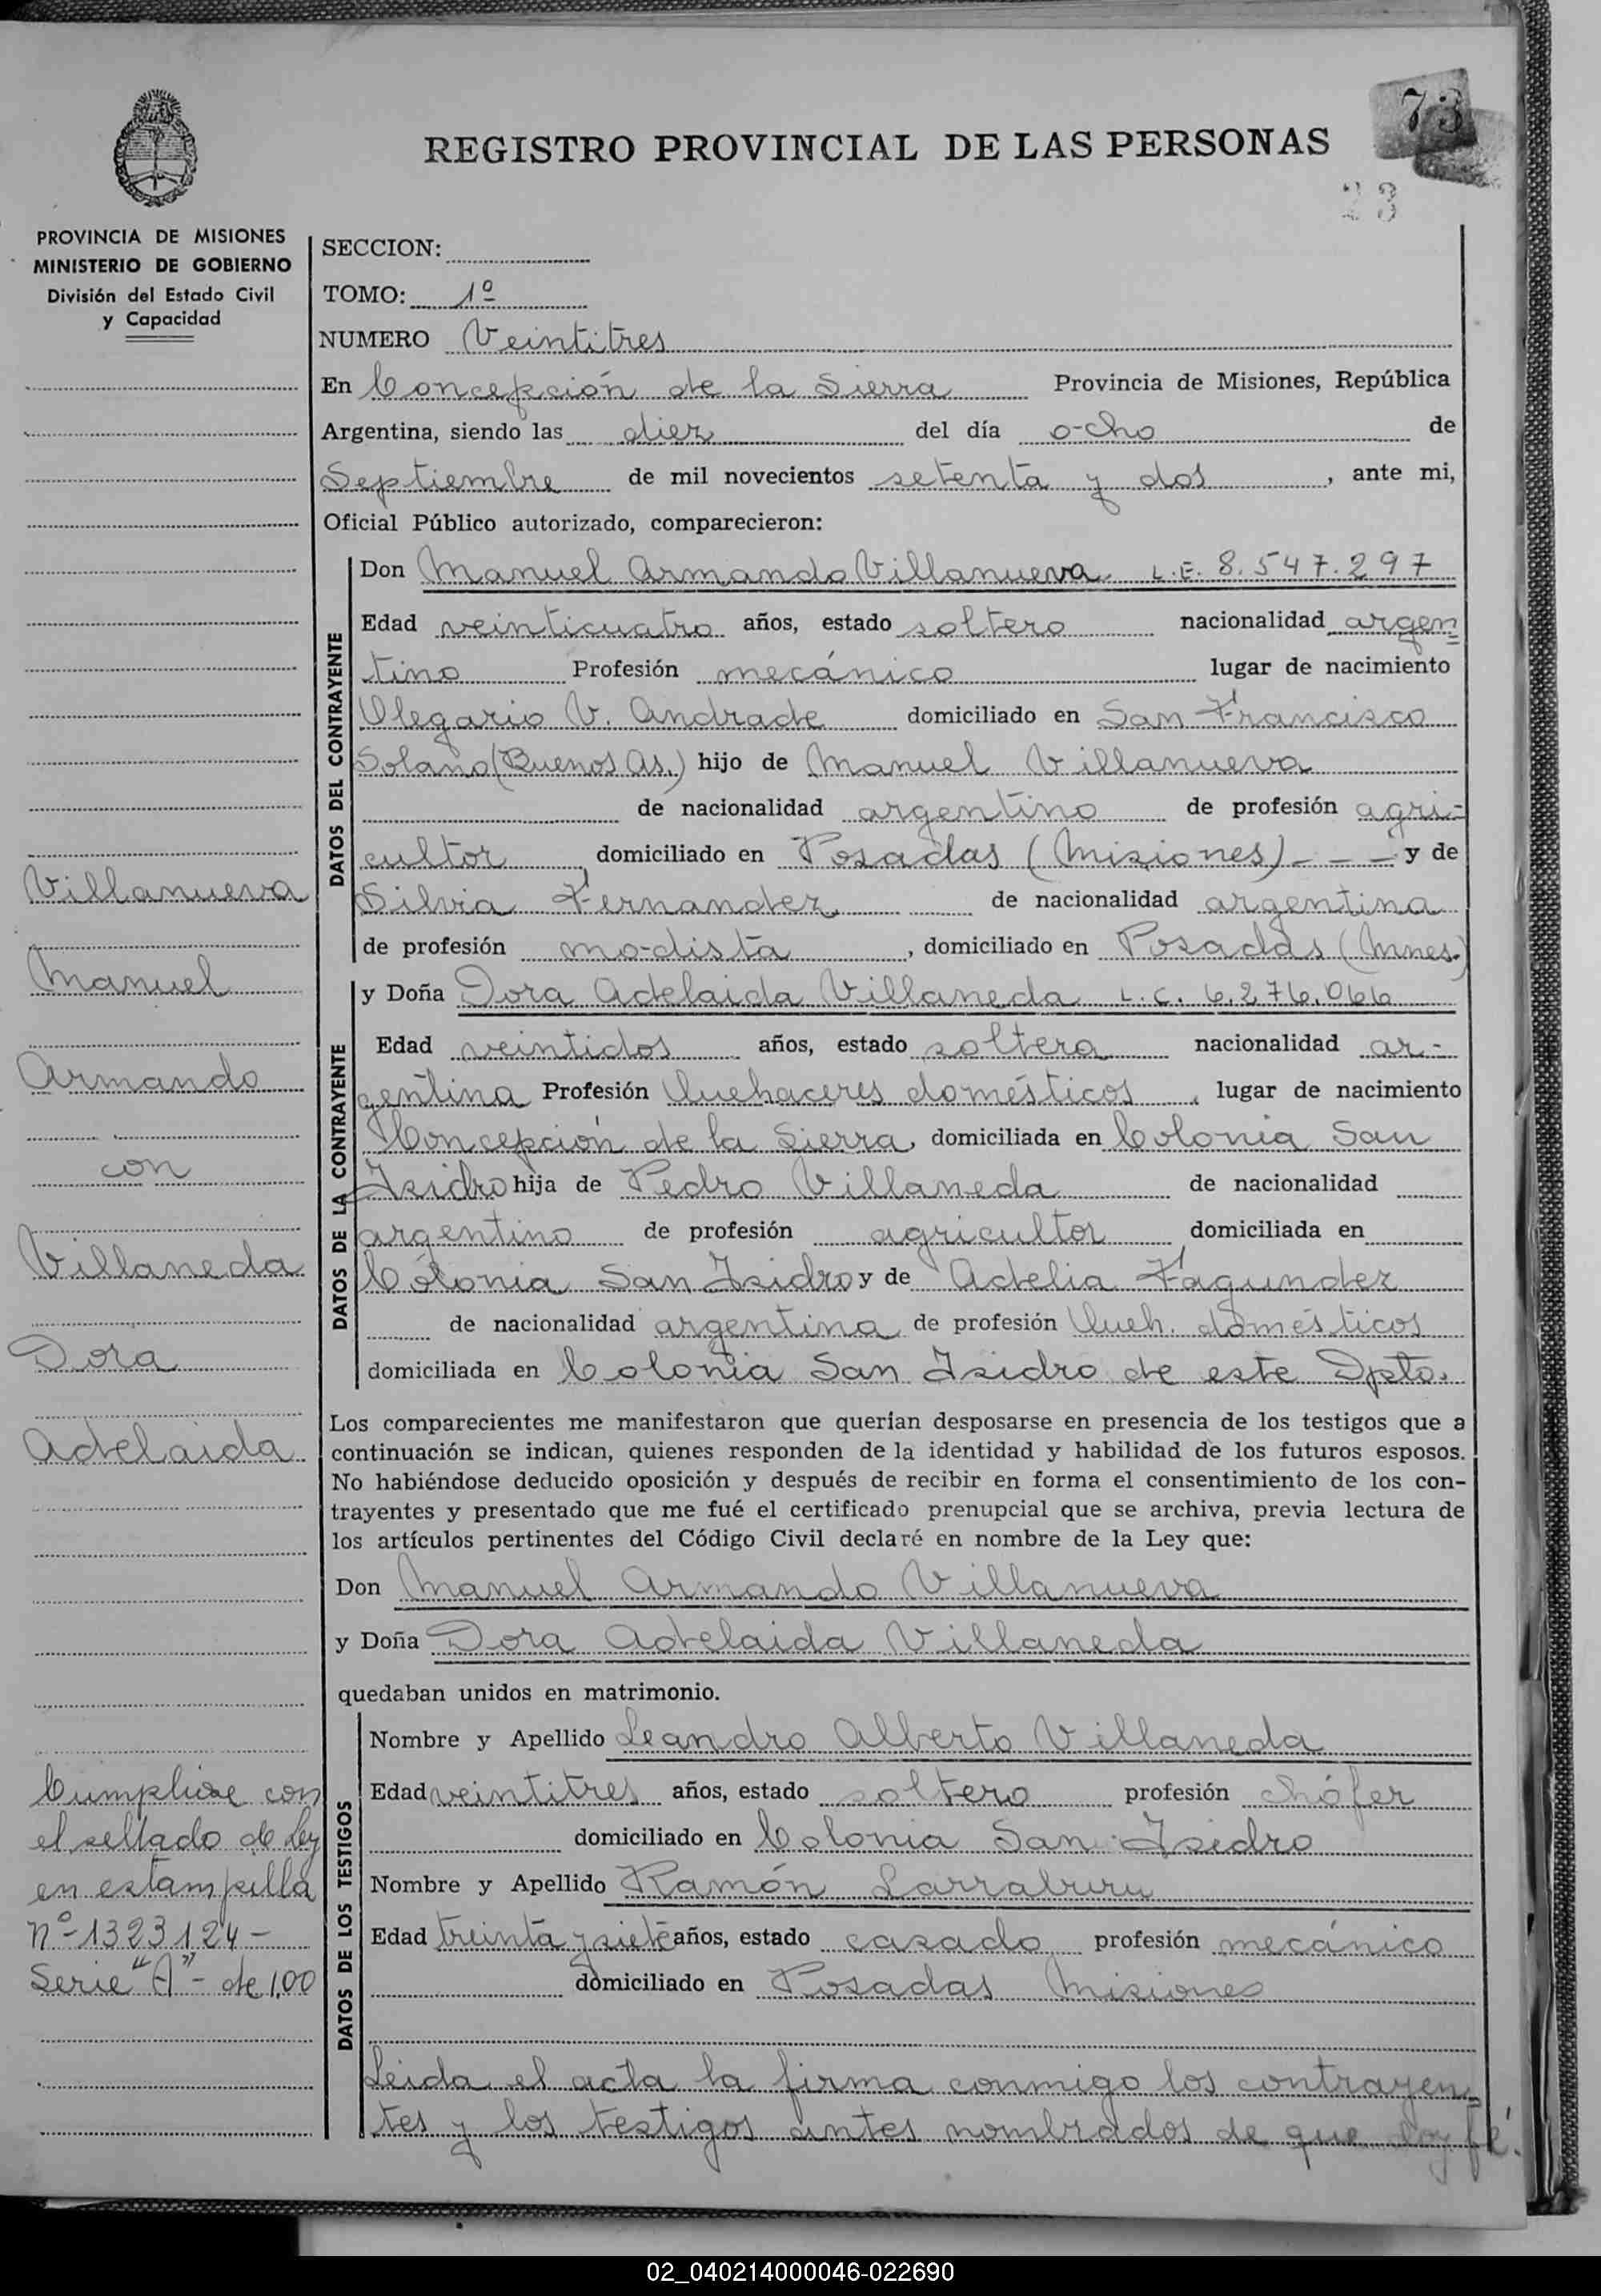 73
REGISTRO PROVINCIAL DE LAS PERSONAS
23
PROVINCIA DE MISIONES
MINISTERIO DE GOBIERNO
División del Estado Civil
y Capacidad
Villanueva
Manuel
Armando
con
Villaneda
Dora
Adelaida
Cumplióse con
el sellado de Ley
en estampilla
nº-1323124-
Serie "A"- de 1,00
SECCION:
TOMO: 1º
NUMERO Veintitres
En Concepción de la Sierra Provincia de Misiones, República
Argentina, siendo las diez del día ocho de
Septiembre de mil novecientos setenta y dos, ante mi,
Oficial Público autorizado, comparecieron:
DATOS DEL CONTRAYENTE
Don Manuel Armando Villanueva L.E. 8.547.297
Edad veinticuatro años, estado soltero nacionalidad argen=
tino Profesión mecánico lugar de nacimiento
Olegario V. Andrade domiciliado en San Francisco
Solano (Buenos As.) hijo de Manuel Villanueva
de nacionalidad argentino de profesión agri-
cultor, domiciliado en Posadas (Misiones) - - - y de
Silvia Fernandez de nacionalidad argentina
de profesión modista, domiciliado en Posadas (Mnes.)
DATOS DE LA CONTRAYENTE
y Doña Dora Adelaida Villaneda L.C. 6.276.066
Edad veintidos años, estado soltera nacionalidad ar-
gentina Profesión Quehaceres domésticos, lugar de nacimiento
Concepción de la Sierra, domiciliada en Colonia San
Isidro hija de Pedro Villaneda de nacionalidad
argentino de profesión agricultor domiciliada en
Colonia San Isidro y de Adelia Fagundez
de nacionalidad argentina de profesión Queh. domésticos
domiciliada en Colonia San Isidro de este Dpto.
Los comparecientes me manifestaron que querían desposarse en presencia de los testigos que a
continuación se indican, quienes responden de la identidad y habilidad de los futuros esposos.
No habiéndose deducido oposición y después de recibir en forma el consentimiento de los con-
trayentes y presentado que me fué el certificado prenupcial que se archiva, previa lectura de
los artículos pertinentes del Código Civil declaré en nombre de la Ley que:
Don Manuel Armando Villanueva
y Doña Dora Adelaida Villaneda
quedaban unidos en matrimonio.
DATOS DE LOS TESTIGOS
Nombre y Apellido Leandro Alberto Villaneda
Edad veintitres años, estado soltero profesión chófer
domiciliado en Colonia San Isidro
Nombre y Apellido Ramón Larraburu
Edad treinta y siete años, estado casado profesión mecánico
domiciliado en Posadas Misiones
Leida el acta la firma conmigo los contrayen=
tes y los testigos antes nombrados de que doy fé.
02_040214000046-022690